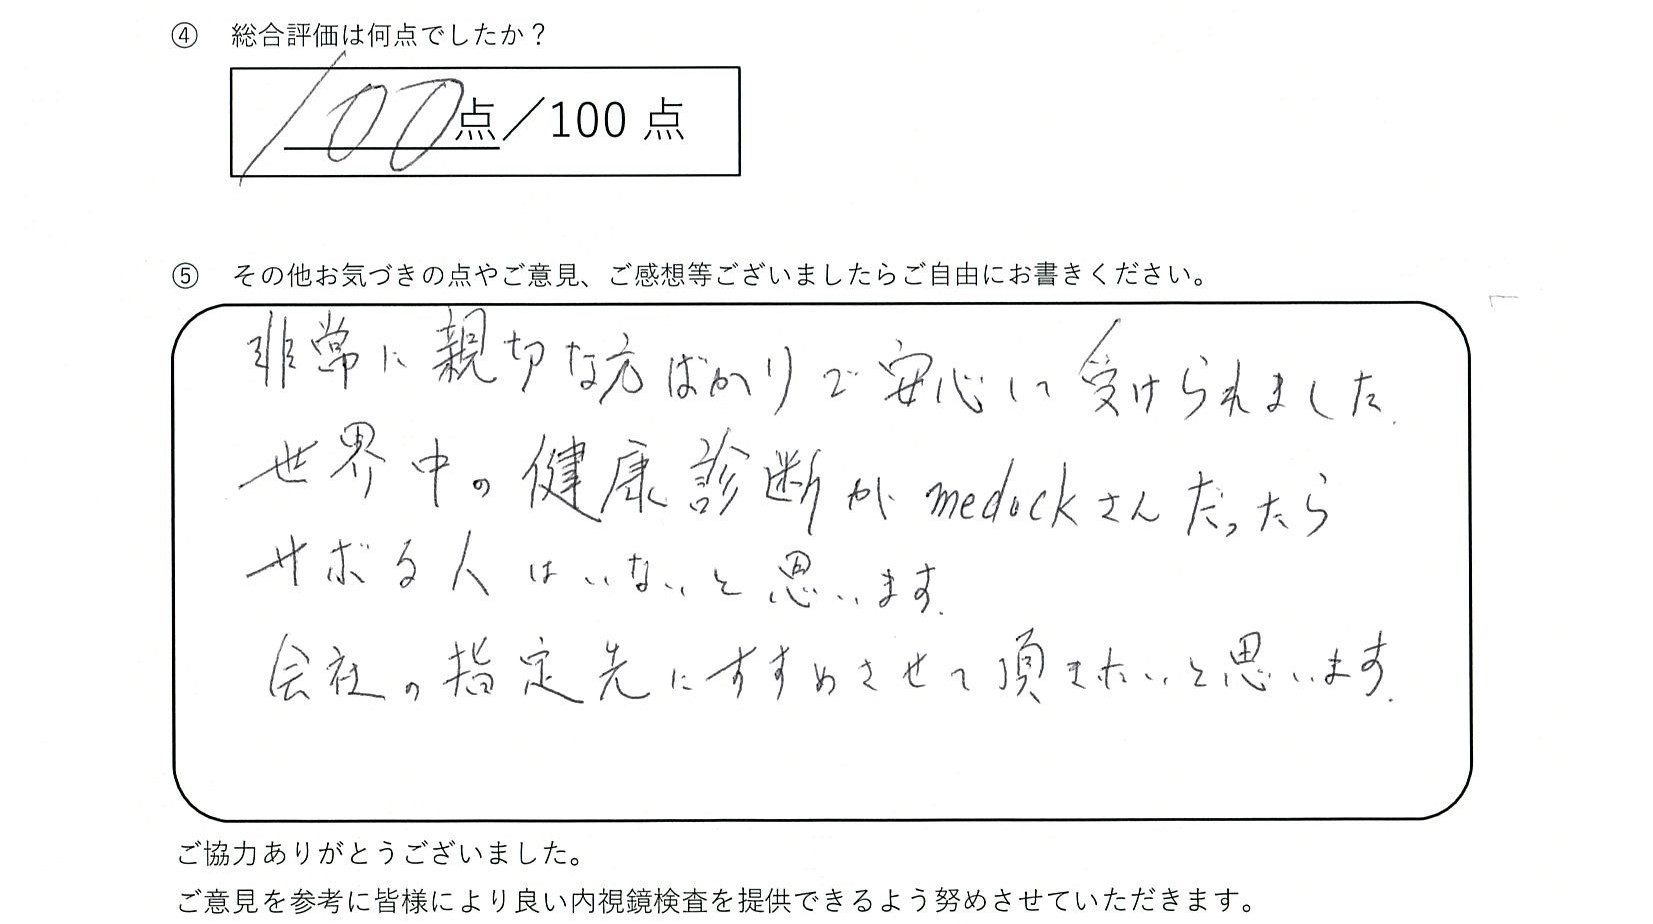 ④ 総合評価は何点でしたか？
100点／100 点
⑤ その他お気づきの点やご意見、ご感想等ございましたらご自由にお書きください。
非常に親切な方ばかりで安心して受けられました.
世界中の健康診断がmedockさんだったら
サボる人はいないと思います.
会社の指定先にすすめさせて頂きたいと思います.
ご協力ありがとうございました。
ご意見を参考に皆様により良い内視鏡検査を提供できるよう努めさせていただきます。